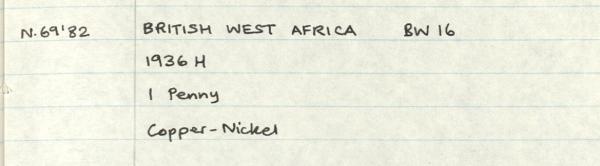 N.69'82 BRITISH WEST AFRICA BW 16
1936 H
1 Penny
Copper-Nickel